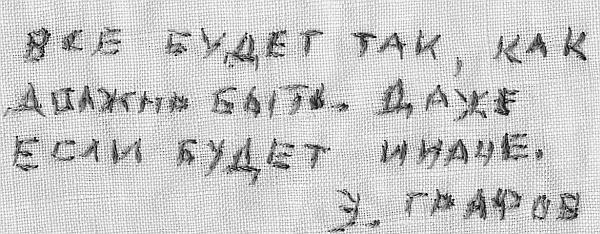 ВСЕ БУДЕТ ТАК, КАК
ДОЛЖНО БЫТЬ. ДАЖЕ
ЕСЛИ БУДЕТ ИНАЧЕ.
Э. ГРАФОВ